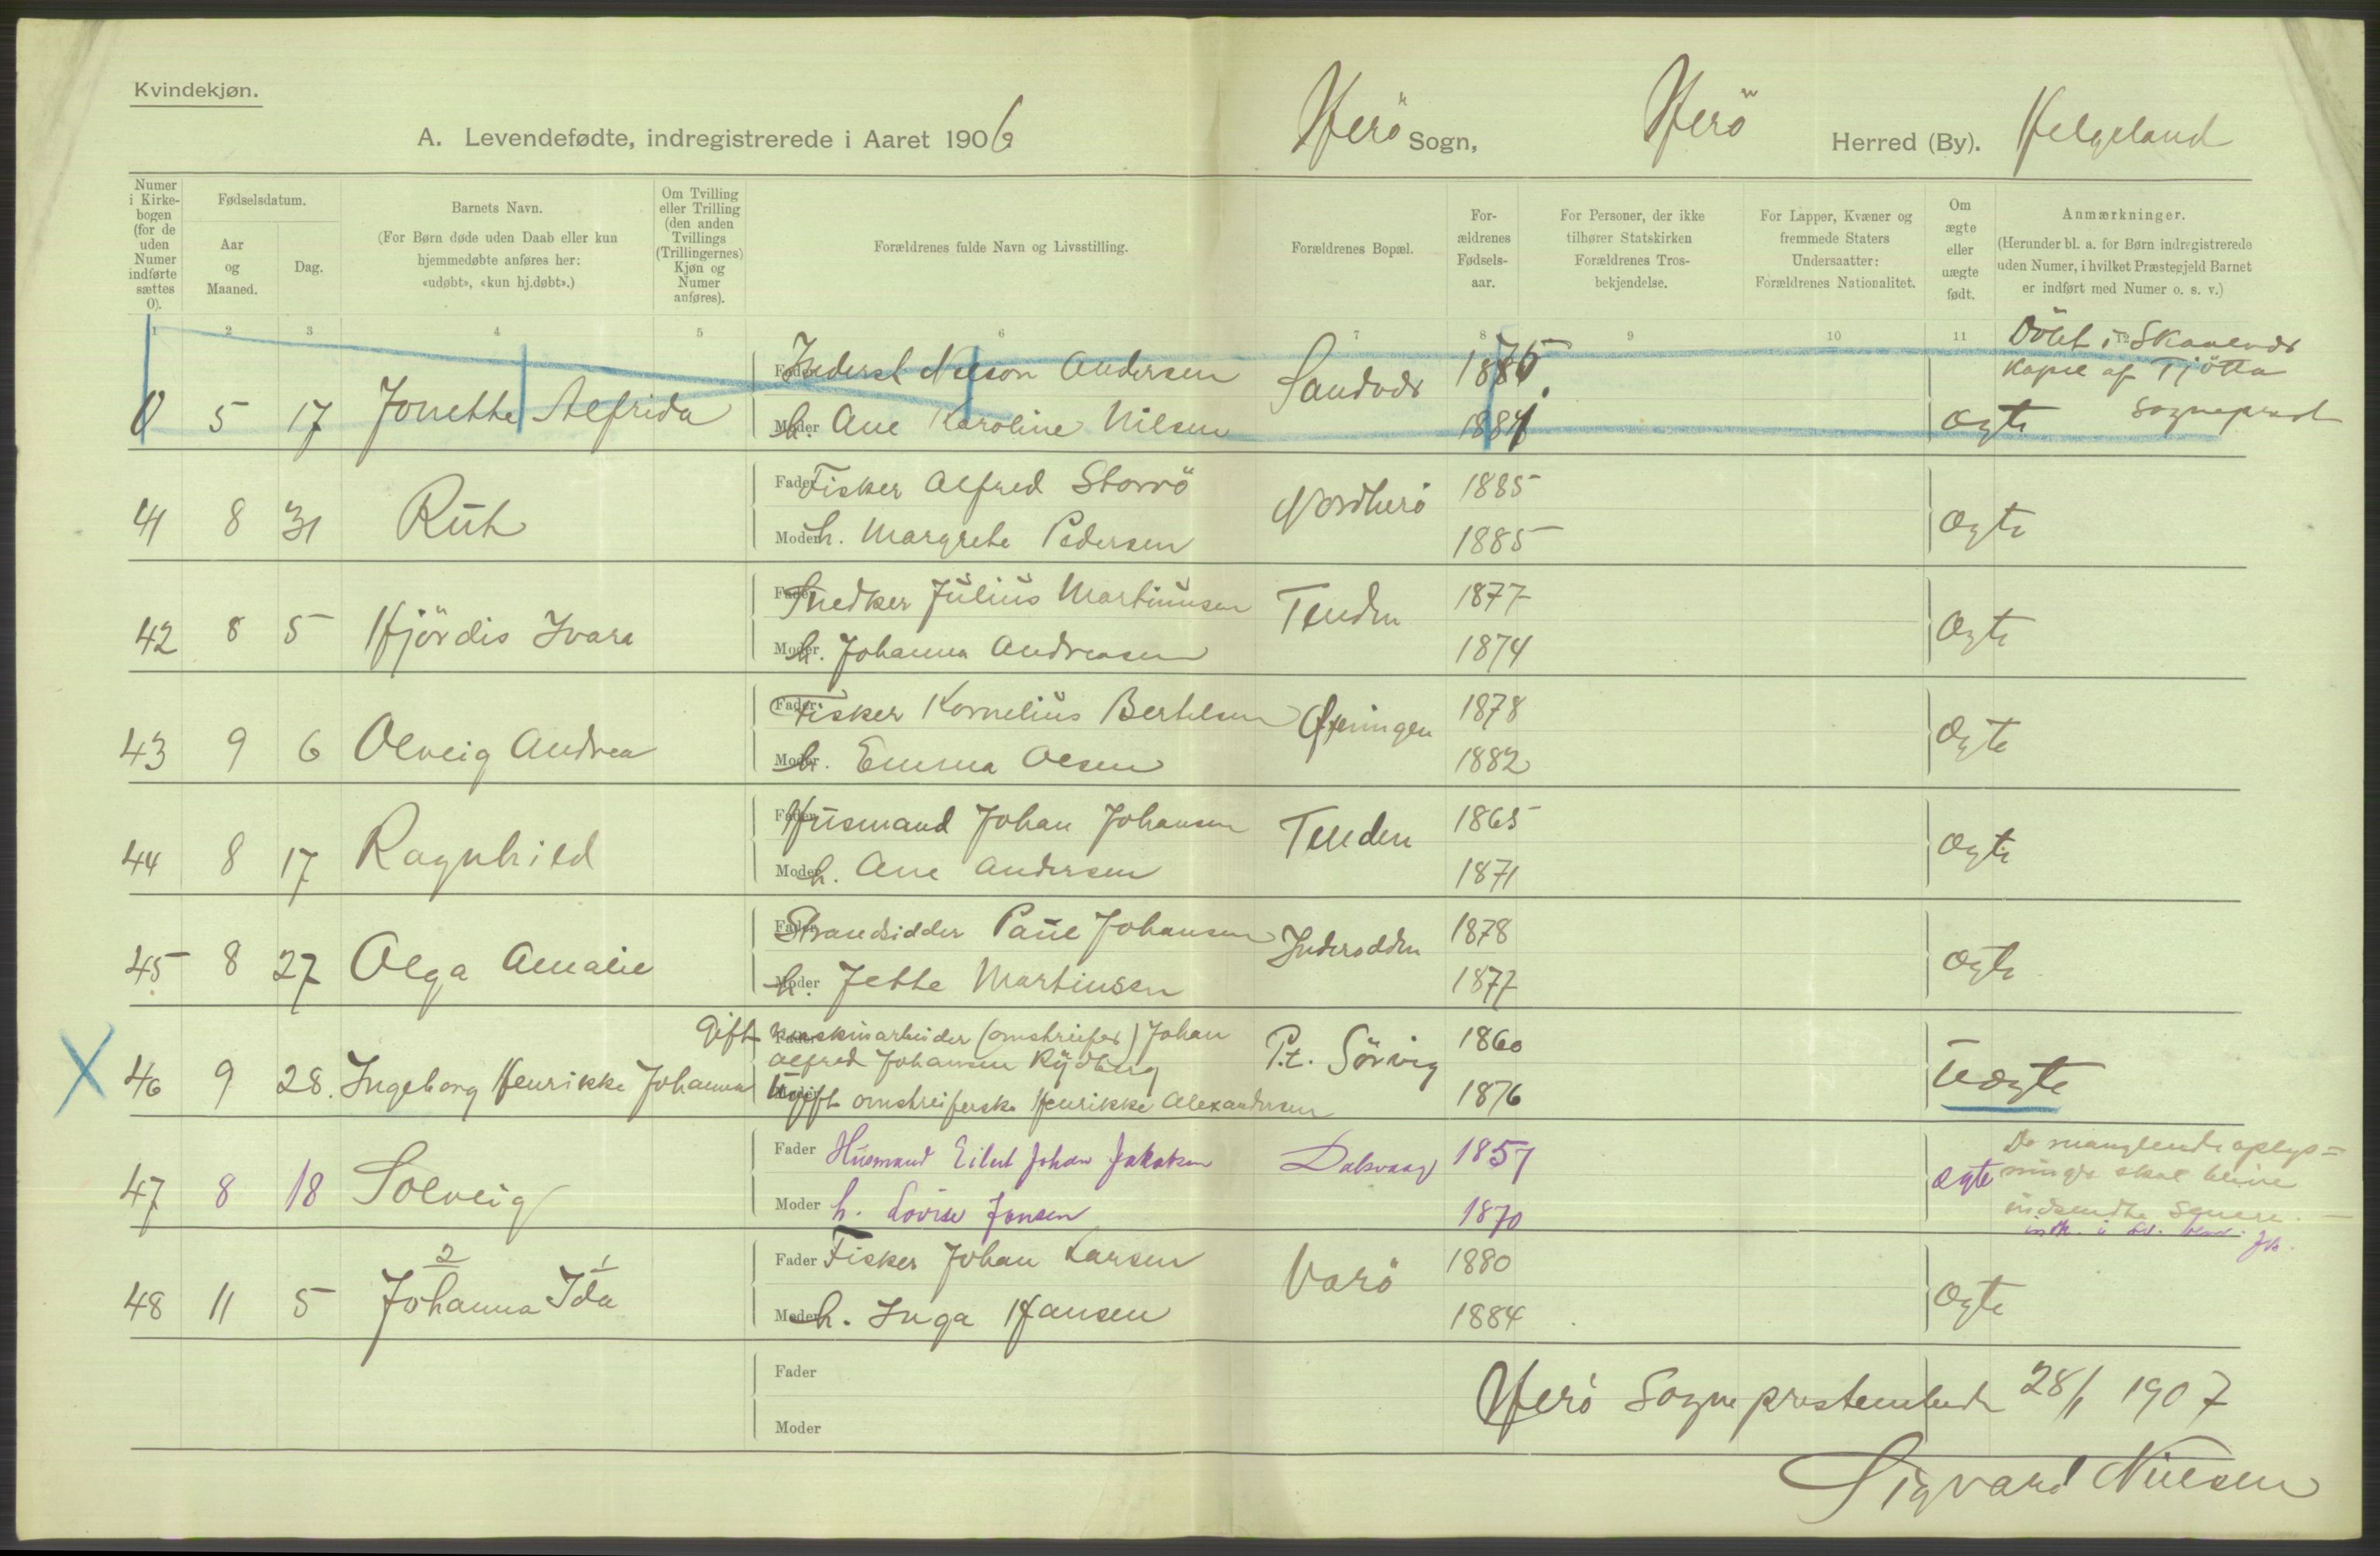 Kvindekjøn.
A. Levendefødte, indregistrerede i Aaret 1906 Herö Sogn, Herö Herred (By). Helgeland
Numer i Kirkebogen (for de uden Numer indførte sættes 0).
Fødselsdatum.
Aar og Maaned.
Dag.
Barnets Navn.
(For Børn døde uden Daab eller kun hjemmedøbte anføres her: «udøbt», «kun hj.døbt».)
Om Tvilling eller Trilling (den anden Tvillings (Trillingernes) Kjøn og Numer anføres).
Forældrenes fulde Navn og Livsstilling.
Forældrenes Bopæl.
Forældrenes Fødselsaar.
For Personer, der ikke tilhører Statskirken Forældrenes Trosbekjendelse.
For Lapper, Kvæner og fremmede Staters Undersaatter: Forældrenes Nationalitet.
Om ægte eller uægte født.
Anmærkninger.
(Herunder bl. a. for Børn indregistrerede uden Numer, i hvilket Præstegjeld Barnet er indført med Numer o. s. v.)
1 2 3 4 5 6 7 8 9 10 11 12
Fader Andersen Sandvær
0 5 17 Jonette Alfrida
Moder h. Ane Karoline Nilsen 1884 Ægte
Döbt i Skaalvær
Kapel af Tjötta
Sogneprest
Fader Fisker Alfred Storrö Nordherö 1885
41 8 31 Ruth
Moder h. Margrete Pedersen 1885 Ægte
Fader Snedker Julius Martinusen Tenden 1877
42 8 5 Hjördis Ivara
Moder h. Johanna Andreasen 1874 Ægte
Fader Fisker Kornelius Bertelsen Øxningen 1878
43 9 6 Olveig Andrea
Moder h. Emma Olsen 1882 Ægte
Fader Husmand Johan Johansen Tenden 1865
44 8 17 Ragnhild
Moder h. Ane Andersen 1871 Ægte
Fader Strandsidder Paul Johansen Inderodden 1878
45 8 27 Olga Amalie
Moder h. Jette Martinsen 1877 Ægte
Gift Fader maskinarbeider (omstreifer) Johan
Alfred Johansen Rydberg P.t. Sörvig 1860
X 46 9 28. Ingeborg Henrikke Johanna
Moder Ugift omstreiferske Henrikke Alexandersen 1876 Uægte
Fader Husmand Eilert Johan Jakobsen Dalsvaag 1857
47 8 18 Solveig
Moder h. Lovise Jonsen 1870 Ægte
De manglende oplys=
ninger skal blive
indsendte senere. —
Fader Fisker Johan Larsen Varö 1880
2 1
48 11 5 Johanna Ida
Moder h. Inga Hansen 1884 Ægte
Fader
Moder
Herö Sogneprestembede 28/1 1907
Sigvard Nielsen